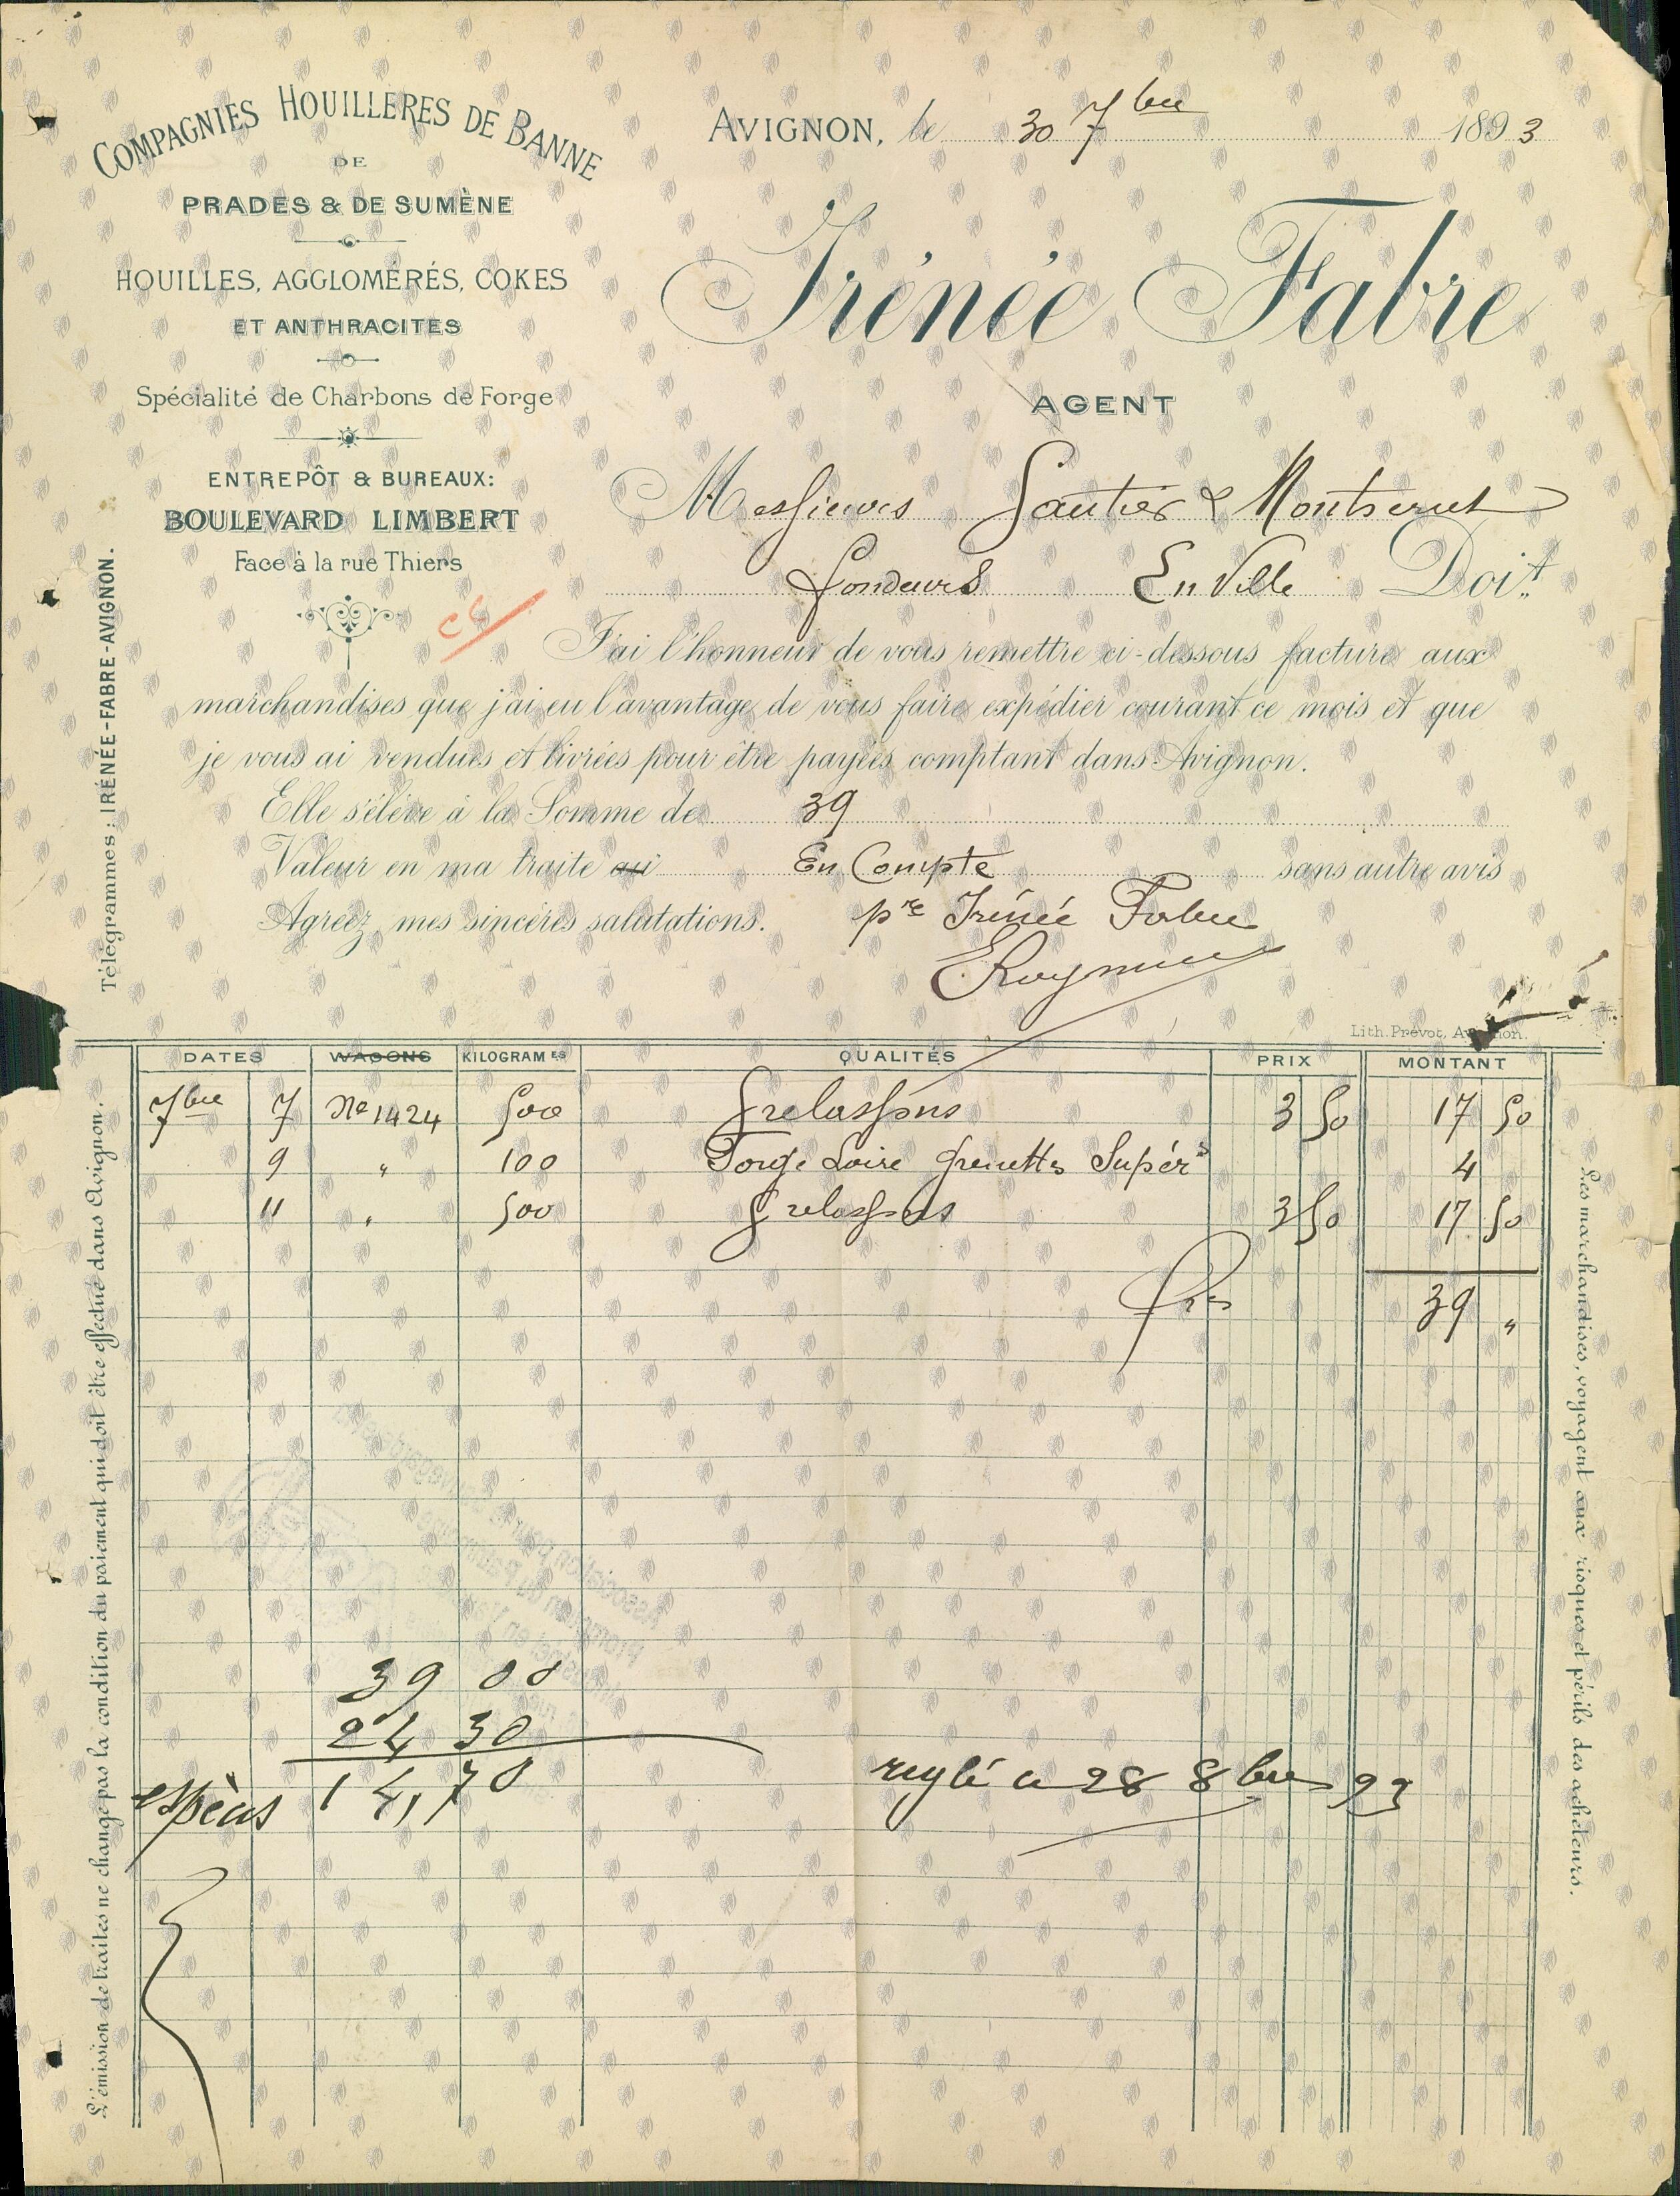 COMPAGNIES HOUILLERES DE BANNE
DE
PRADES & DE SUMÈNE
HOUILLES, AGGLOMÉRÉS, COKES
ET ANTHRACITES
Spécialité de Charbons de Forge
ENTREPÔT & BUREAUX:
BOULEVARD LIMBERT
Face à la rue Thiers
Télégrammes: IRÉNÉE-FABRE-AVIGNON.
AVIGNON, le 30 7bre 1893
Irénée Fabre
AGENT
Messieurs Gautier & Montserret
fondeurs En Ville Doit
J'ai l'honneur de vous remettre ci-dessous facture aux
marchandises que j'ai eu l'avantage de vous faire expédier courant ce mois et que
je vous ai vendues et livrées pour être payées comptant dans Avignon.
Elle s'élève à la Somme de 39
Valeur en ma traite au En Compte sans autre avis
Agréez, mes sincères salutations. pre Irénée Fabre
Lith. Prévot, Avignon.
DATES WAGONS KILOGRAMES QUALITÉS PRIX MONTANT
7bre 7 No 1424 500 Grelassons 3 50 17 50
9 " 100 Forge Loire Grenettes Supérs 4
11 " 500 Grelassons 3 50 17 50
frcs 39 "
39 00
24 30
espèces 14,70
reglé le 28 8bre 93
L'émission de traites ne change pas la condition du paiement qui doit être effectué dans Avignon.
Les marchandises, voyagent aux risques et périls des acheteurs.